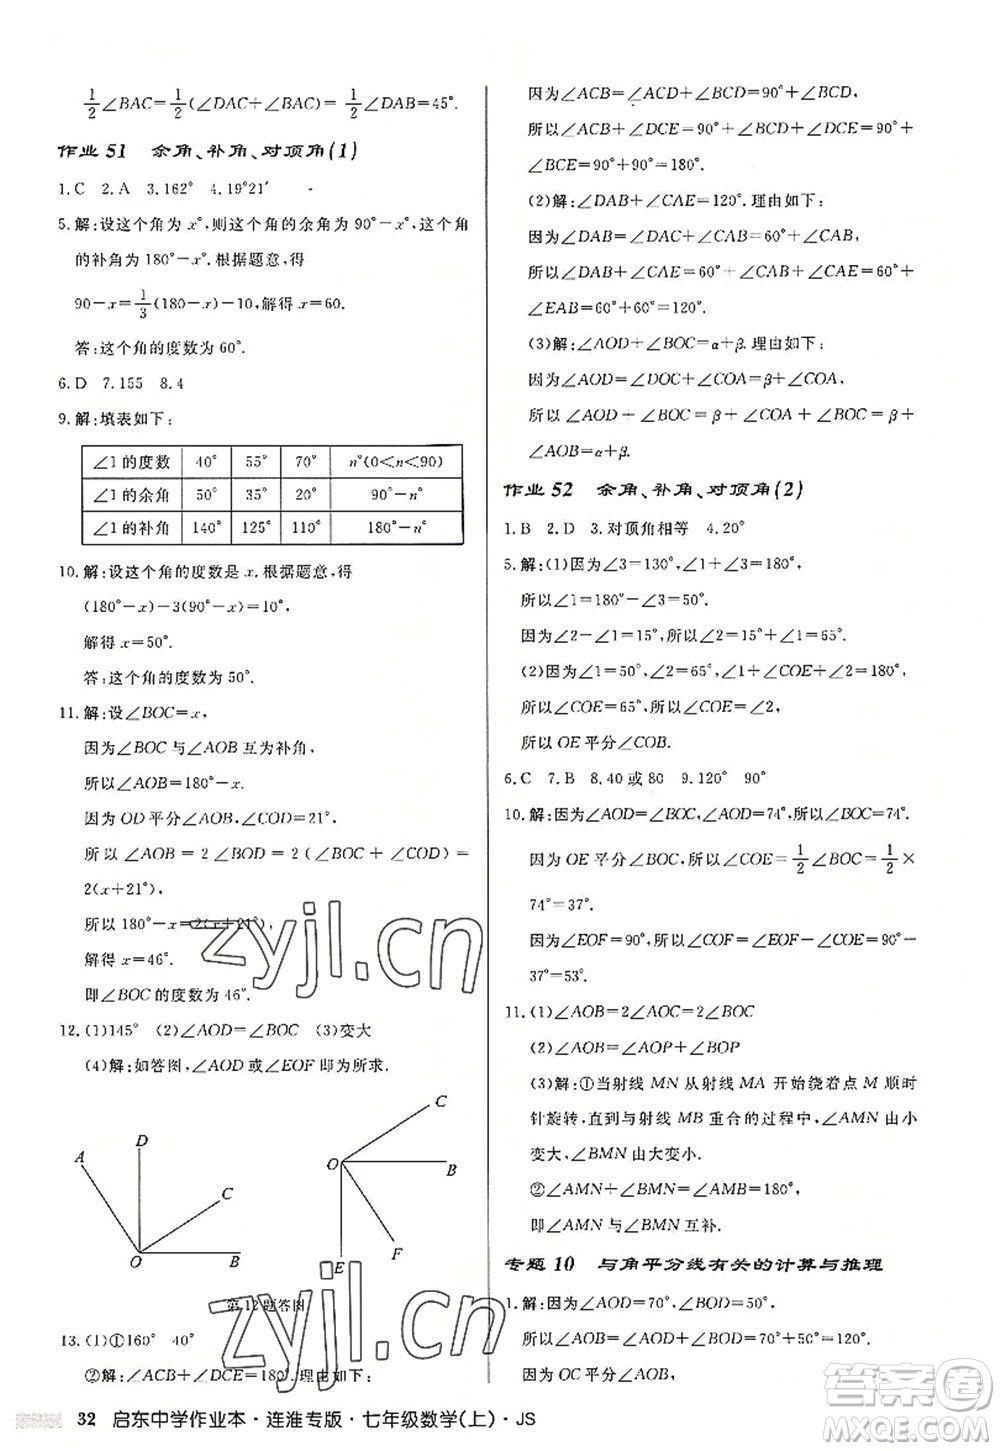 1/2∠BAC=1/2(∠DAC+∠BAC)=1/2∠DAB=45°.
作业 51 余角、补角、对顶角(1)
1.C 2.A 3.162° 4.19°21′
5.解:设这个角为 x°,则这个角的余角为 90°-x°,这个角
的补角为 180°-x°.根据题意,得
90-x=1/3(180-x)-10,解得 x=60.
答:这个角的度数为 60°.
6.D 7.155 8.4
9.解:填表如下:
∠1 的度数 40° 55° 70° n°(0<n<90)
∠1 的余角 50° 35° 20° 90°-n°
∠1 的补角 140° 125° 110° 180°-n°
10.解:设这个角的度数是 x.根据题意,得
(180°-x)-3(90°-x)=10°,
解得 x=50°.
答:这个角的度数为 50°.
11.解:设∠BOC=x,
因为∠BOC 与∠AOB 互为补角,
所以∠AOB=180°-x.
因为 OD 平分∠AOB,∠COD=21°,
所以∠AOB=2∠BOD=2(∠BOC+∠COD)=
2(x+21°),
所以 180°-x=2(x+21°),
解得 x=46°.
即∠BOC 的度数为 46°.
12.(1)145° (2)∠AOD=∠BOC (3)变大
(4)解:如答图,∠AOD 或∠EOF 即为所求.
A D C O B
C O B E F
第 12 题答图
13.(1)①160° 40°
②解:∠ACB+∠DCE=180°.理由如下:
因为∠ACB=∠ACD+∠BCD=90°+∠BCD,
所以∠ACB+∠DCE=90°+∠BCD+∠DCE=90°+
∠BCE=90°+90°=180°.
(2)解:∠DAB+∠CAE=120°.理由如下:
因为∠DAB=∠DAC+∠CAB=60°+∠CAB,
所以∠DAB+∠CAE=60°+∠CAB+∠CAE=60°+
∠EAB=60°+60°=120°.
(3)解:∠AOD+∠BOC=α+β.理由如下:
因为∠AOD=∠DOC+∠COA=β+∠COA,
所以∠AOD+∠BOC=β+∠COA+∠BOC=β+
∠AOB=α+β.
作业 52 余角、补角、对顶角(2)
1.B 2.D 3.对顶角相等 4.20°
5.解:(1)因为∠3=130°,∠1+∠3=180°,
所以∠1=180°-∠3=50°.
因为∠2-∠1=15°,所以∠2=15°+∠1=65°.
(2)因为∠1=50°,∠2=65°,∠1+∠COE+∠2=180°,
所以∠COE=65°,所以∠COE=∠2,
所以 OE 平分∠COB.
6.C 7.B 8.40 或 80 9.120° 90°
10.解:因为∠AOD=∠BOC,∠AOD=74°,所以∠BOC=74°.
因为 OE 平分∠BOC,所以∠COE=1/2∠BOC=1/2×
74°=37°.
因为∠EOF=90°,所以∠COF=∠EOF-∠COE=90°-
37°=53°.
11.(1)∠AOB=2∠AOC=2∠BOC
(2)∠AOB=∠AOP+∠BOP
(3)解:①当射线 MN 从射线 MA 开始绕着点 M 顺时
针旋转,直到与射线 MB 重合的过程中,∠AMN 由小
变大,∠BMN 由大变小.
②∠AMN+∠BMN=∠AMB=180°,
即∠AMN 与∠BMN 互补.
专题 10 与角平分线有关的计算与推理
1.解:因为∠AOD=70°,∠BOD=50°.
所以∠AOB=∠AOD+∠BOD=70°+50°=120°.
因为 OC 平分∠AOB,
32 启东中学作业本·连淮专版·七年级数学(上)·JS
zyjl.cn
zyjl.cn
答案圈
MXQE.COM